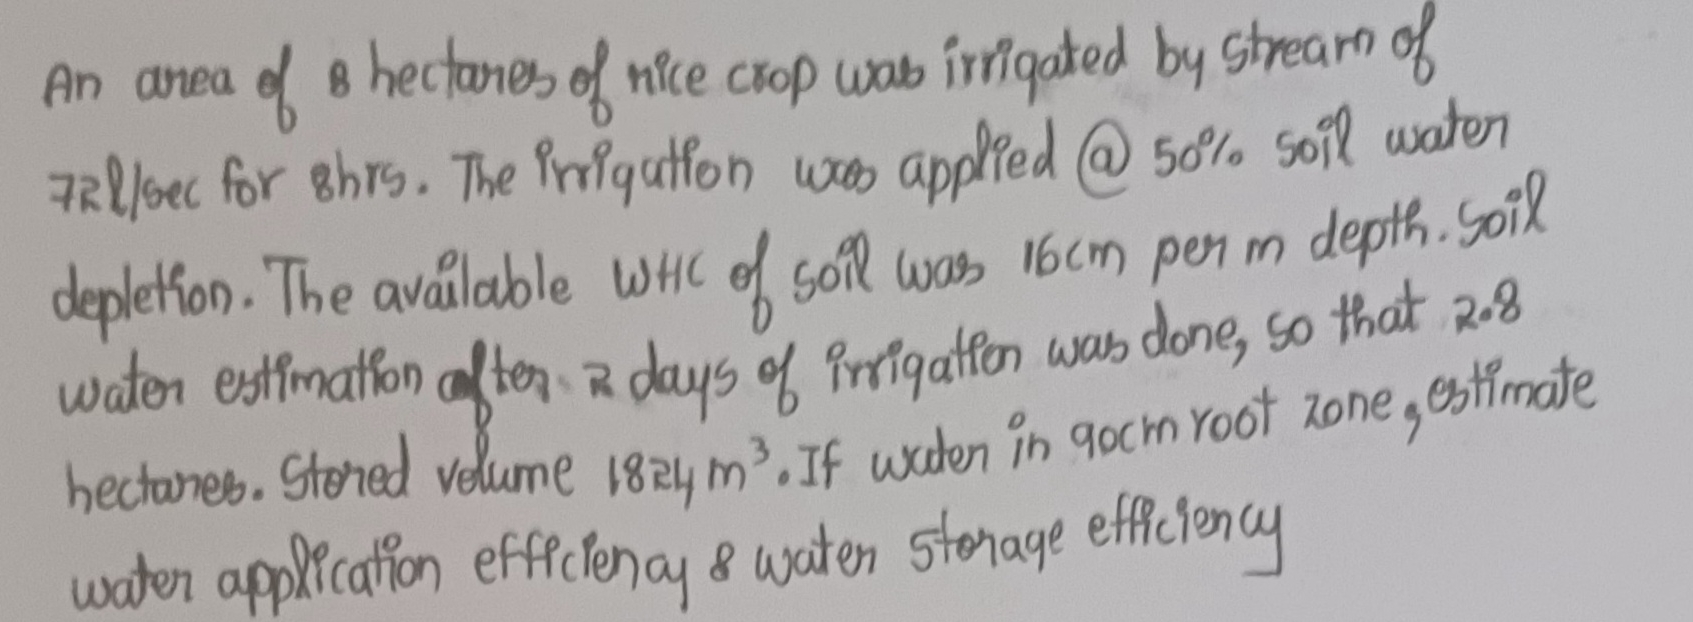 An area of 8 hectares of rice crop was irrigated by stream of
72l/sec for 8hrs. The irrigation was applied @ 50% soil water
depletion. The available WHC of soil was 16cm per m depth. Soil
water estimation after 2 days of irrigation was done, so that 2.8
hectares. Stored volume 1824 m³. If water in 90cm root zone, estimate
water application efficiency & water storage efficiency